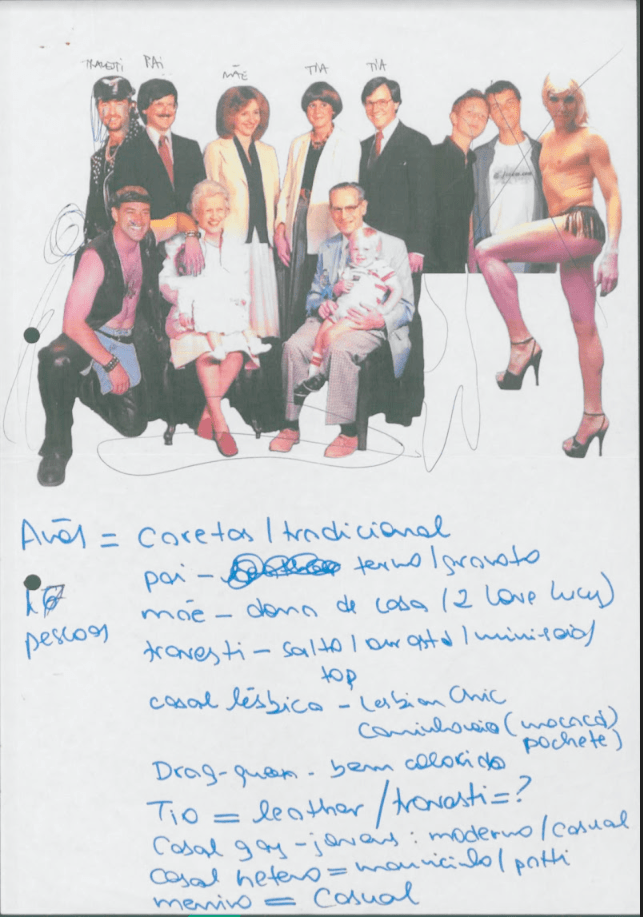 TRAVESTI PAI MÃE TIA TIA
Avós = caretas / tradicional
pai - terno / gravata
mãe - dona de casa (I Love Lucy)
10
pessoas
travesti - salto / / minisaia /
top
casal lésbica - Lesbian Chic
Caminhoneira (macacã
pochete)
Drag-queen - bem colorido
Tio = leather / travesti = ?
Casal gay - jovens : moderno / casual
casal hetero = mauricinho / patti
menino = Casual